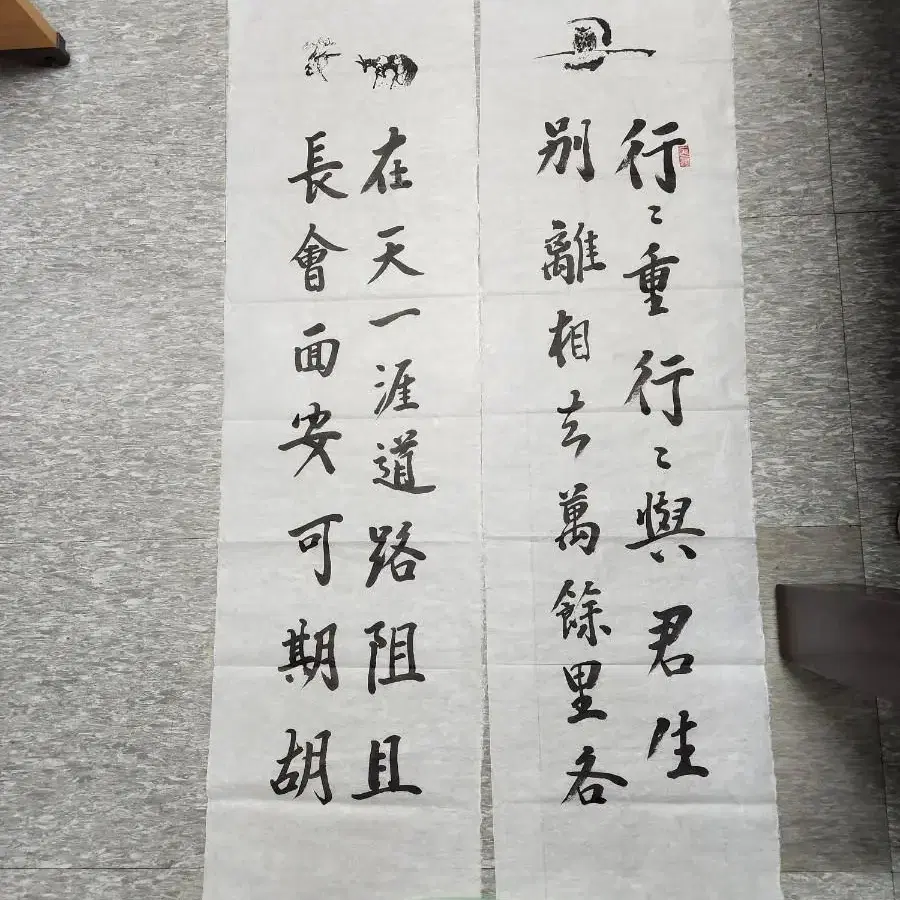 行〻重行〻與君生
別離相去萬餘里各
在天一涯道路阻且
長會面安可期胡